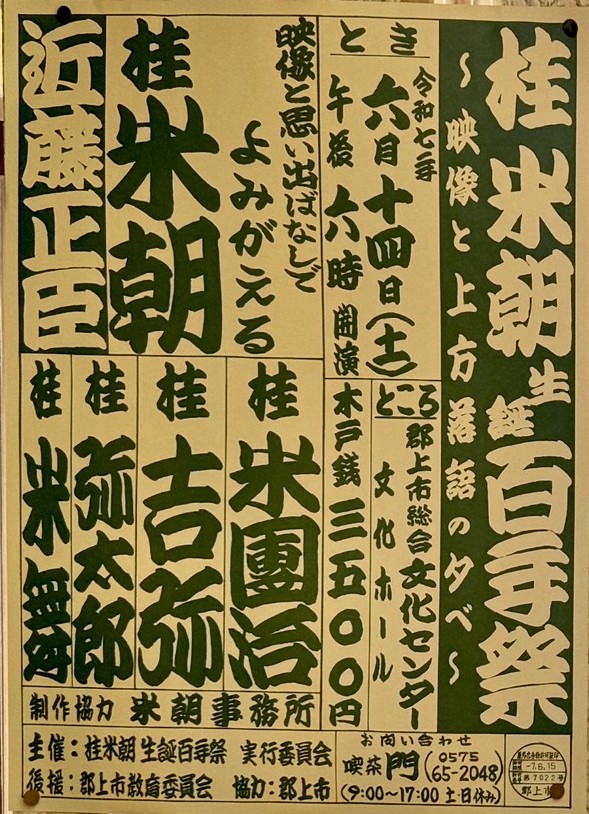 桂米朝生誕百年祭
～映像と上方落語の夕べ～
とき
令和七年
六月十四日(土)
午後六時開演
ところ
郡上市総合文化センター
文化ホール
木戸銭 三五〇〇円
映像と思い出ばなしで
よみがえる
桂米朝
近藤正臣
桂米團治
桂吉弥
桂弥太郎
桂米舞
制作協力 米朝事務所
主催：桂米朝生誕百年祭 実行委員会
後援：郡上市教育委員会 協力：郡上市
お問い合わせ
喫茶 門 (0575 65-2048)
(9:00～17:00 土・日休み)
-7.6.15
第7022号
郡上市